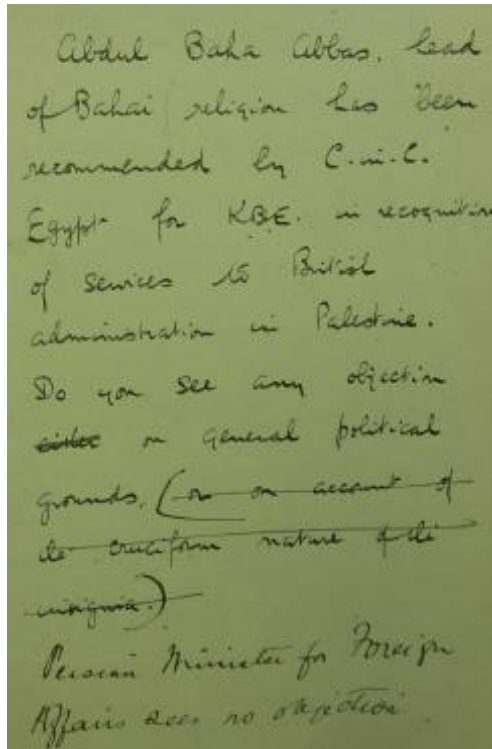 Abdul Baha Abbas, head
of Bahai religion has been
recommended by C.-in-C.
Egypt for KBE. in recognition
of services to British
administration in Palestine.
Do you see any objection
either on general political
grounds. (or on account of
the cruciform nature of the
insignia.)
Persian Minister for Foreign
Affairs sees no objection.